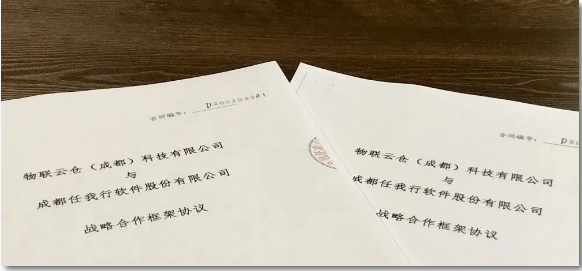 合同编号：
物联云仓（成都）科技有限公司
与
成都任我行软件股份有限公司
战略合作框架协议
合同编号：
物联云仓（成都）科技有限公司
与
成都任我行软件股份有限公司
战略合作框架协议